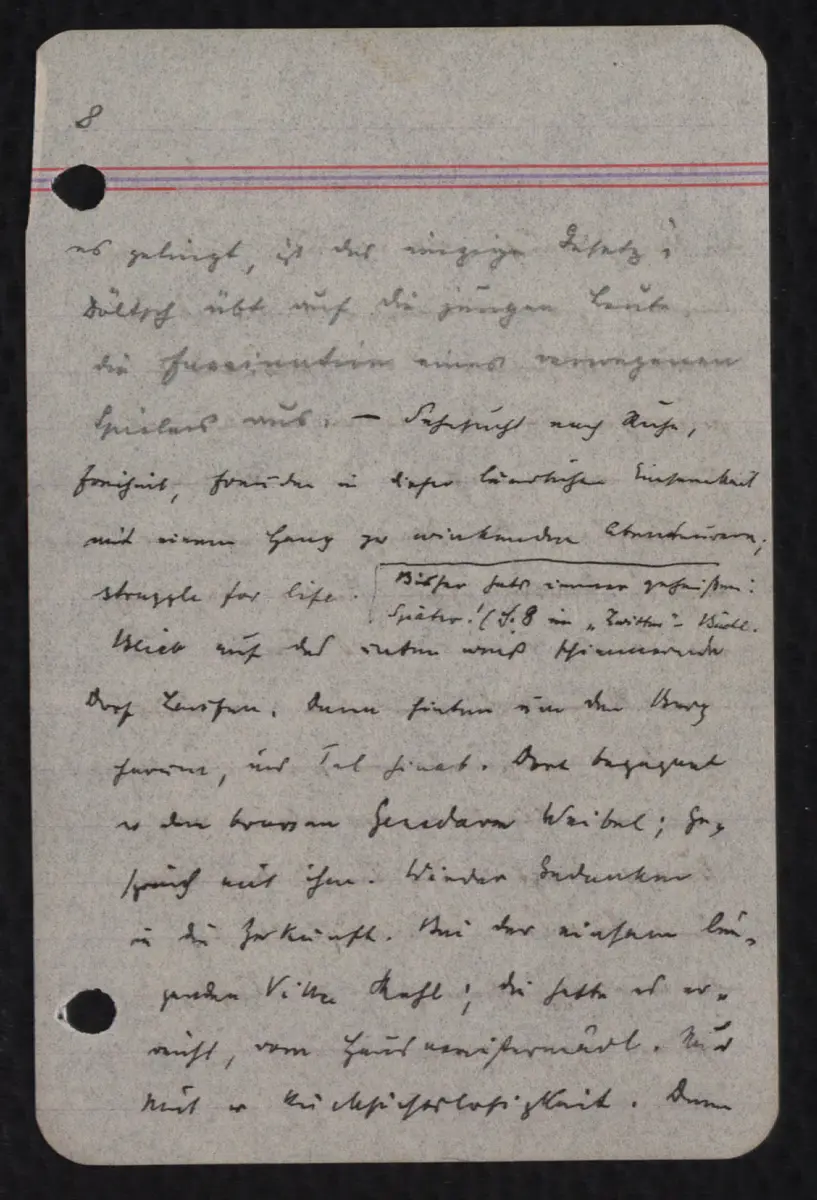 8
es gelingt, ist das einzige Gesetz;
Döltsch übt auf die jungen Leute
die Fascination eines verwegenen
Spielers aus. — Sehnsucht nach Ruhe,
Freiheit, Freuden in dieser ländlichen Einsamkeit
mit einem Hang zu winkenden Abenteuern;
struggle for life.
Bisher hats immer geheißen:
Später! (S. 8 im „Zwitter"-Büchl.
Blick auf das unten weiß schimmernde
Dorf. Dann hinten um den Berg
herum, ins Tal hinab. Dort begegnet
er dem braven Gendarm Weibel; Ge-
spräch mit ihm. Wieder Gedanken
in die Zukunft. Bei der einsam lie-
genden Villa; die hatte es er-
reicht, vom Hausmeistermädl. Nur
mit Rücksichtslosigkeit. Dann